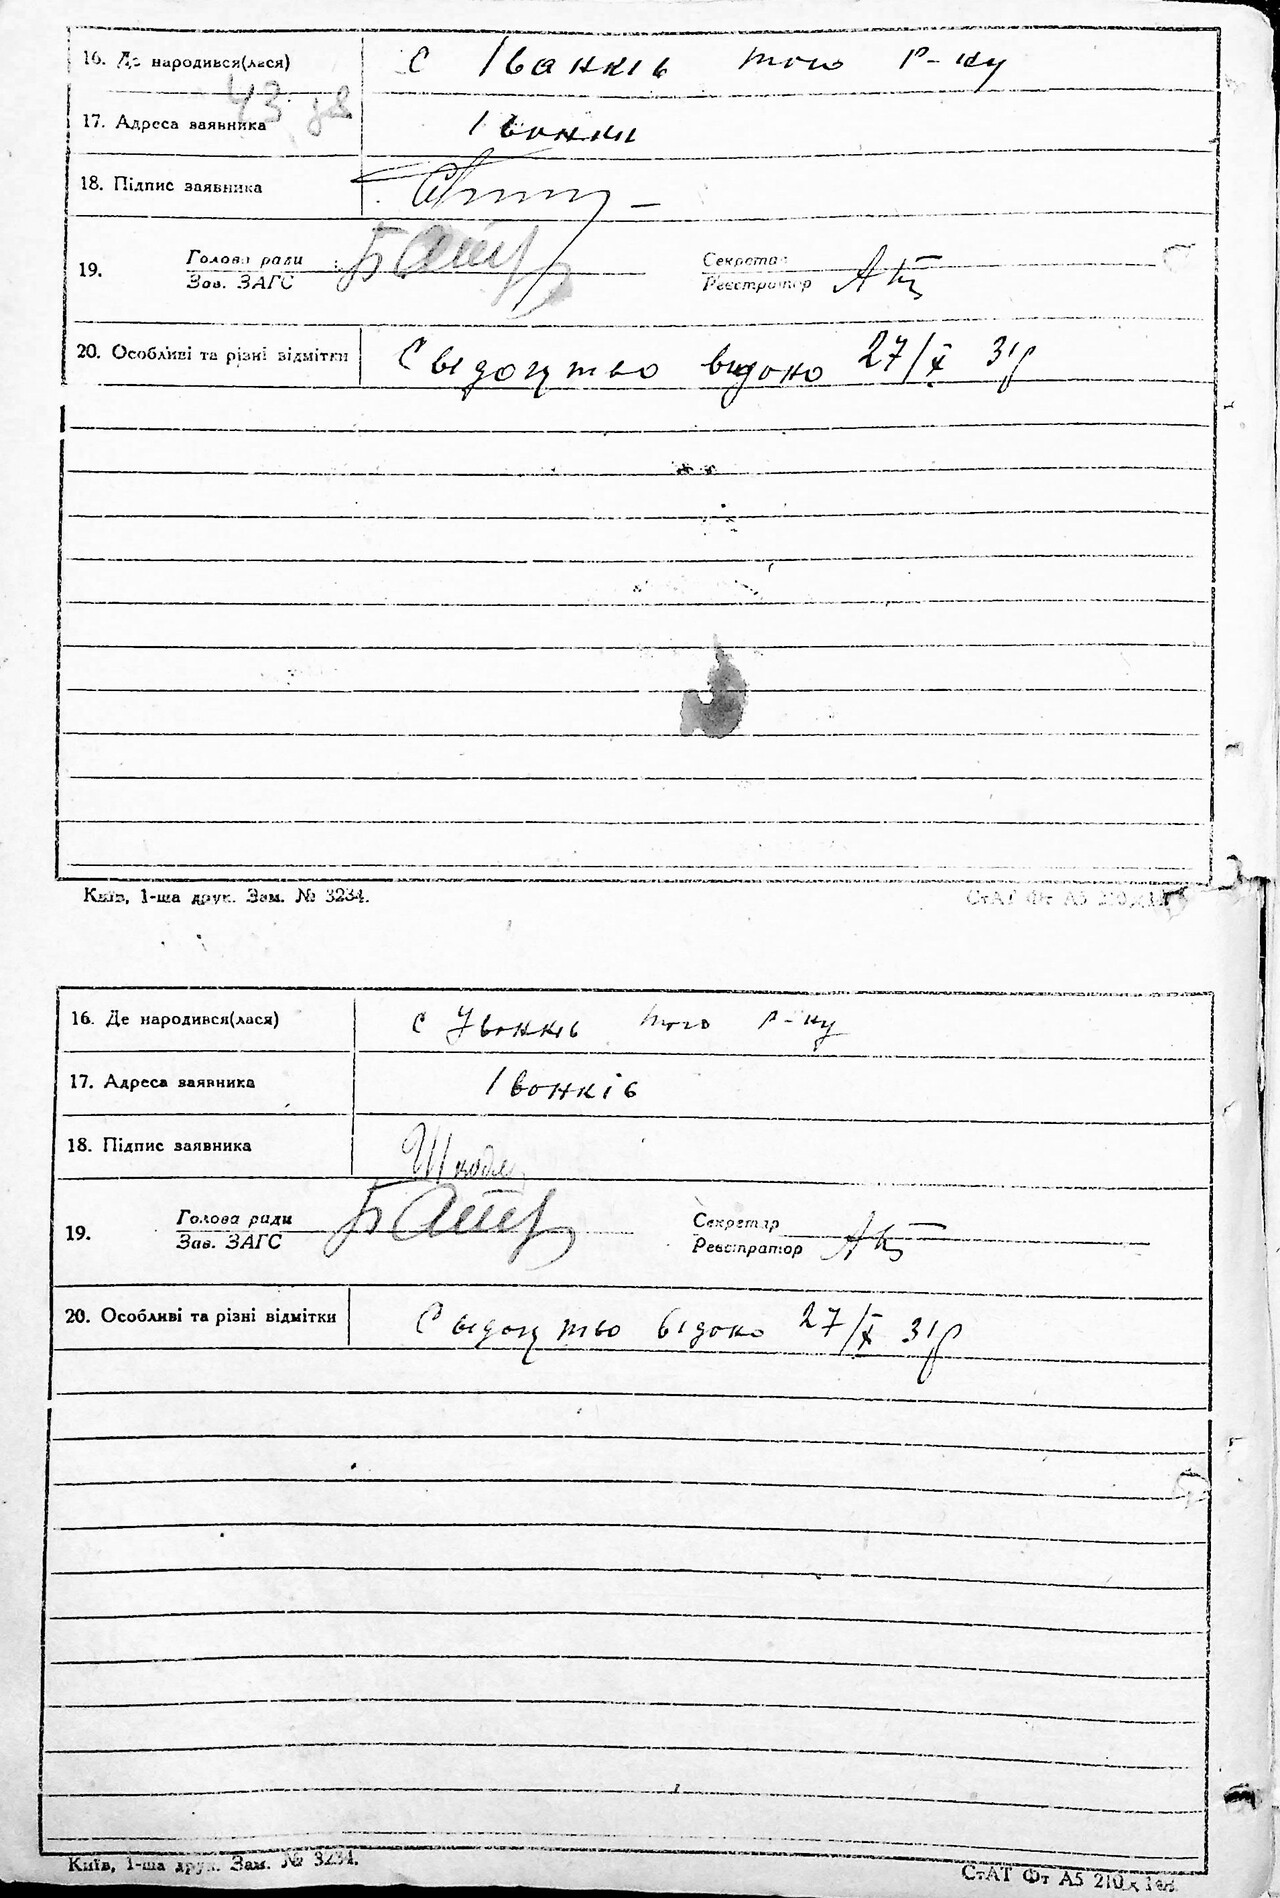 16. Де народився(лася) с Іванків того р-ну
43 зв
17. Адреса заявника Іванків
18. Підпис заявника
19. Голова ради Секретар
Зав. ЗАГС Реєстратор
20. Особливі та різні відмітки Свідоцтво видано 27/X 31р
Київ, 1-ша друк. Зам. № 3234. СтАТ Фт А5 210×148
16. Де народився(лася) с Іванків того р-ну
17. Адреса заявника Іванків
18. Підпис заявника
19. Голова ради Секретар
Зав. ЗАГС Реєстратор
20. Особливі та різні відмітки Свідоцтво відано 27/X 31р
Київ, 1-ша друк. Зам. № 3234. СтАТ Фт А5 210×148